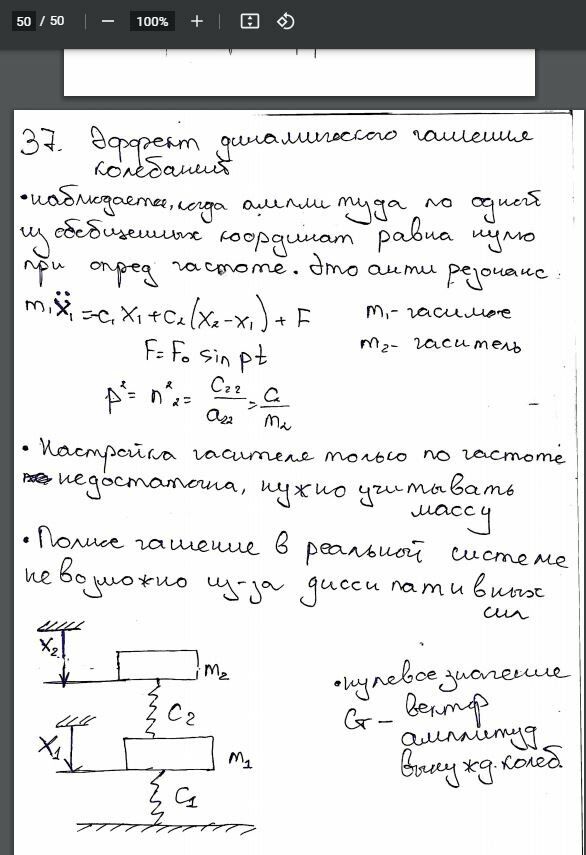 50 / 50
100%
37. Эффект динамического гашения
колебаний
• наблюдается, когда амплитуда по одной
из обобщенных координат равна нулю
при опред частоте. Это анти резонанс.
m₁ẍ₁ = -c₁x₁ + c₂(x₂ - x₁) + F
m₁ - гасимое
F = F₀ sin pt
m₂ - гаситель
p² = n²₂ = c₂₂/a₂₂ = c₂/m₂
• Настройка гасителя только по частоте
недостаточна, нужно учитывать
массу
• Полное гашение в реальной системе
невозможно из-за диссипативных
сил
x₂
m₂
c₂
x₁
m₁
c₁
• нулевое значение
вектор
амплитуд
вынужд. колеб.